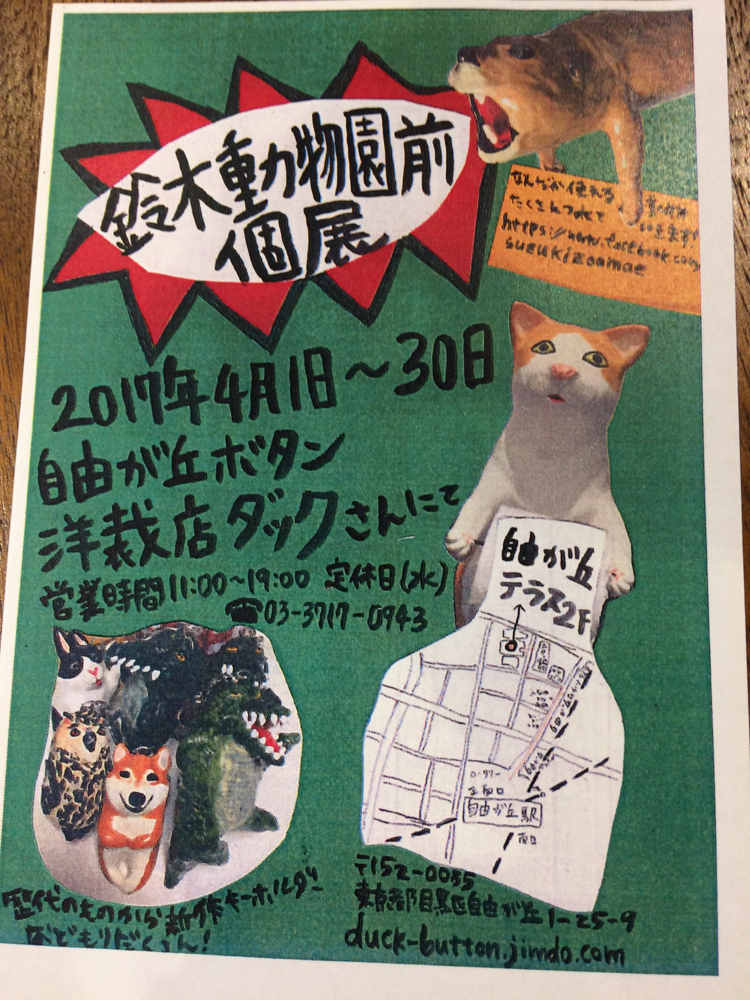 鈴木動物園前
個展
なんだか使える
たくさんつれて いきます!
https://www.facebook.com
suzukizoomae
2017年4月1日～30日
自由が丘ボタン
洋裁店ダックさんにて
営業時間11:00～19:00 定休日(水)
☎03-3717-0943
自由が丘
テラス2F
正面口
自由が丘駅
南口
歴代のものから新作キーホルダー
などもりだくさん!
〒152-0035
東京都目黒区自由が丘1-25-9
duck-button.jimdo.com